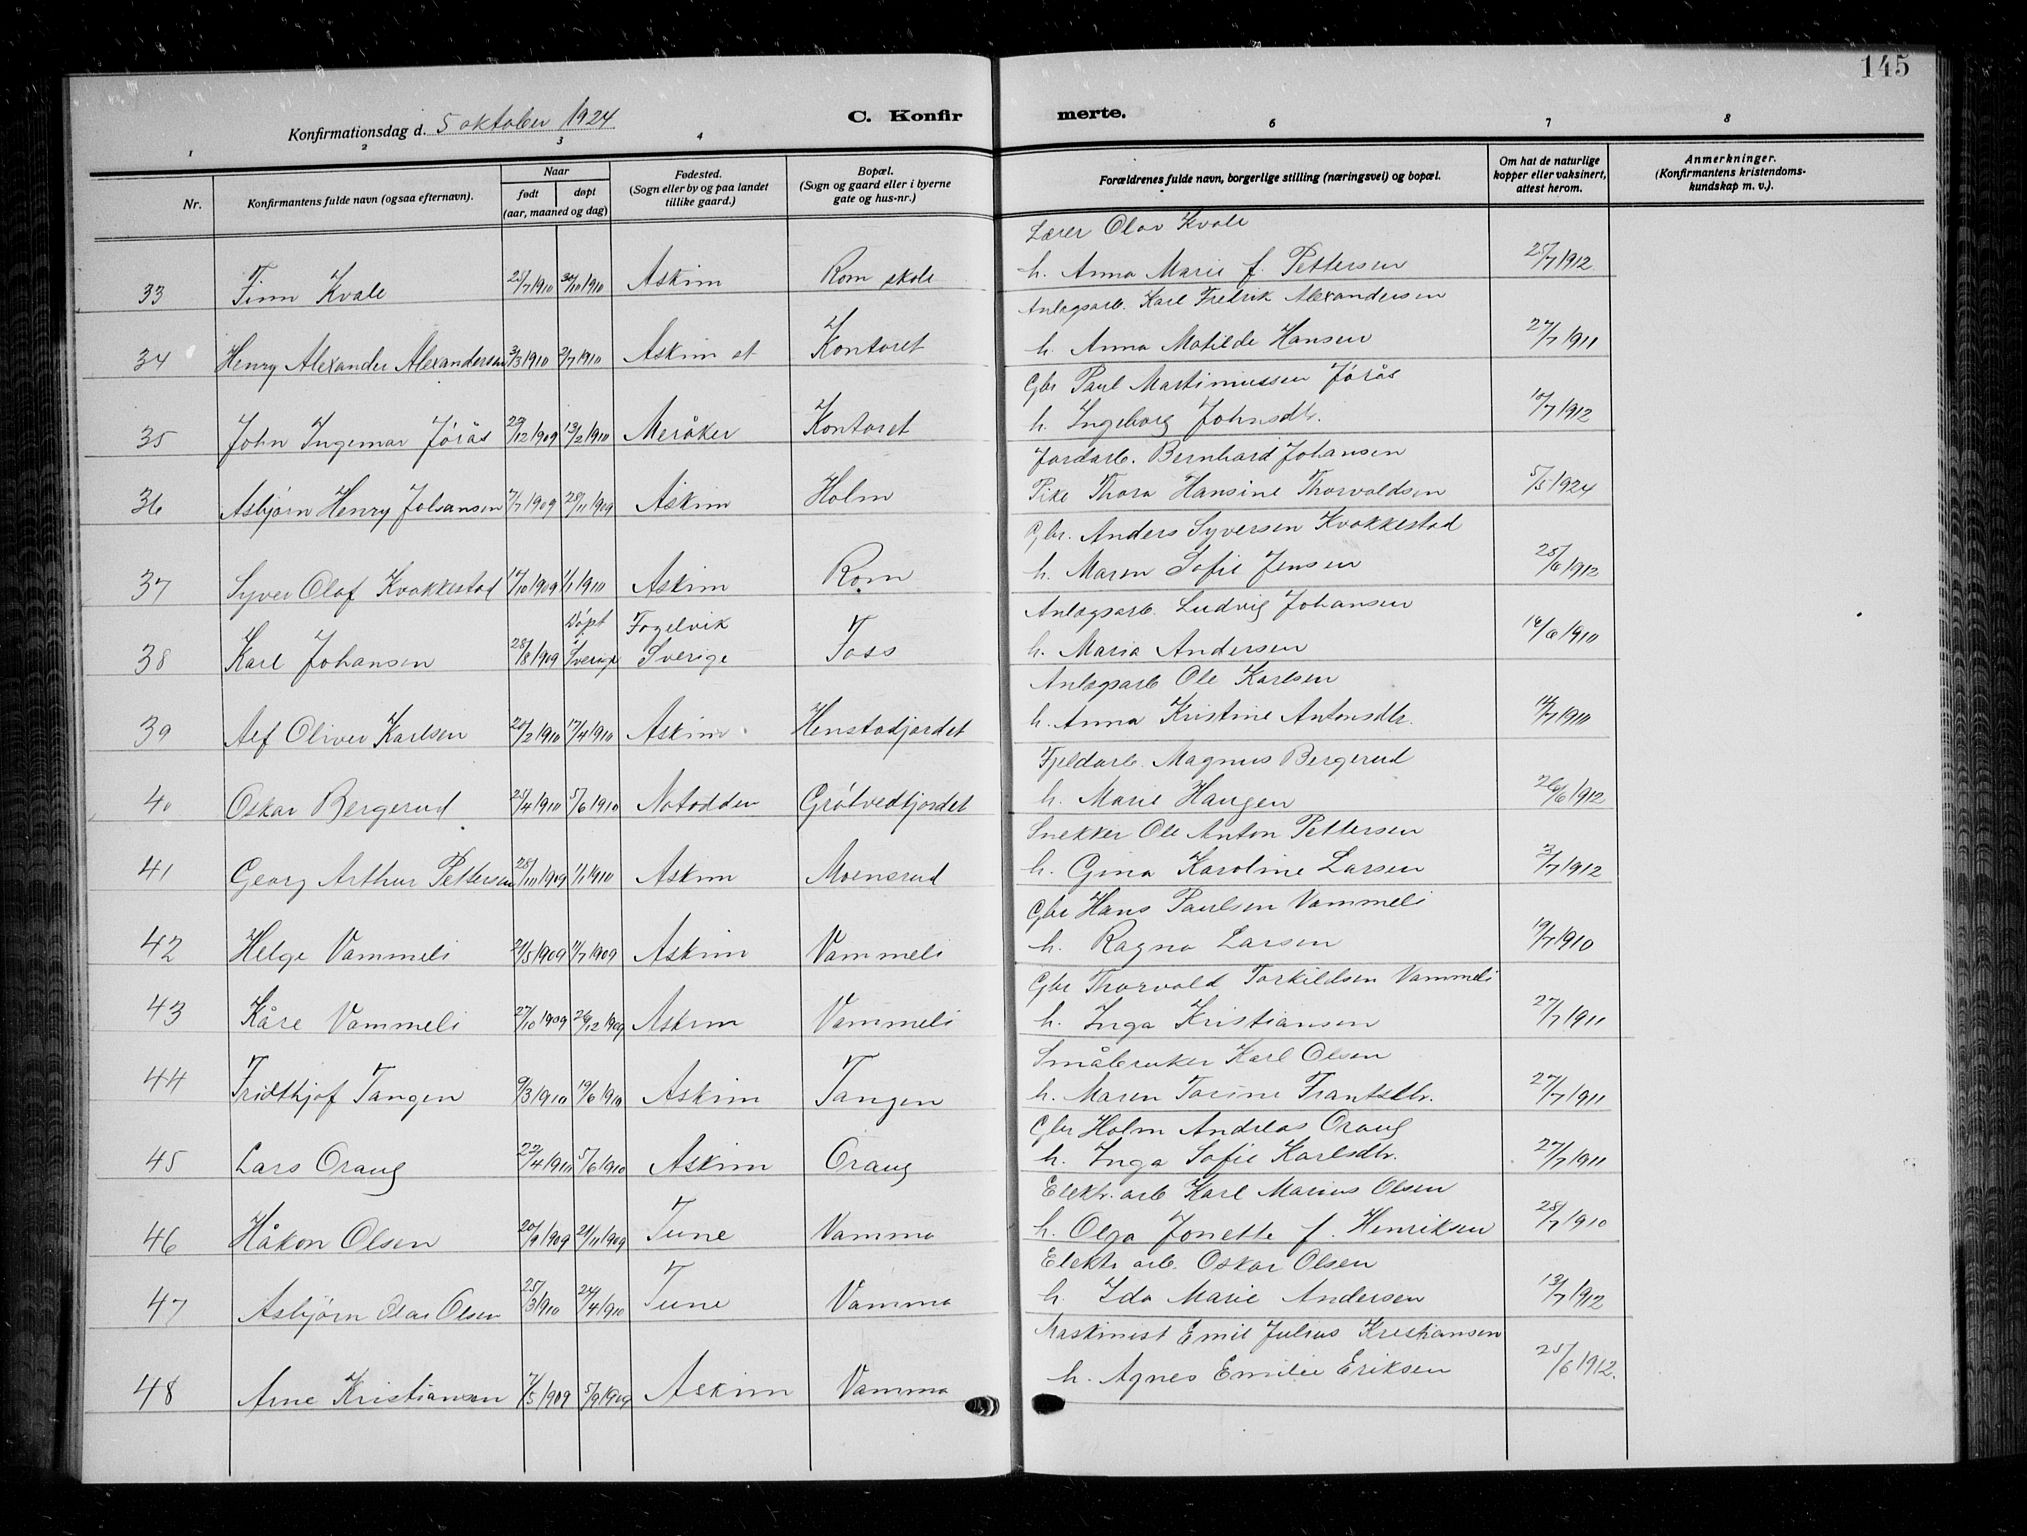 145
Konfirmationsdag d. 5 oktober 1924
C. Konfirmerte.
1 2 3 4 6 7 8
Nr. Konfirmantens fulde navn (ogsaa efternavn). Naar født døpt (aar, maaned og dag) Fødested. (Sogn eller by og paa landet tillike gaard.) Bopæl. (Sogn og gaard eller i byerne gate og hus-nr.) Forældrenes fulde navn, borgerlige stilling (næringsvei) og bopæl. Om hat de naturlige kopper eller vaksinert, attest herom. Anmerkninger. (Konfirmantens kristendomskundskap m. v.).
Lærer Olav Kvale
33 Finn Kvale 25/7 1910 30/10 1910 Askim Rom skole h. Anna Marie f. Pettersen 25/7 1912
Anlegsarb. Karl Fredrik Alexandersen
34 Henry Alexander Alexandersen 3/3 1910 2/7 1910 Askim st Kontoret h. Anna Matilde Hansen 27/7 1911
Gbr Paul Martinussen Jørås
35 John Ingemar Jørås 23/12 1909 13/2 1910 Meråker Kontoret h. Ingeborg Johnsdtr. 10/7 1912
Jordarb. Bernhard Johansen
36 Asbjørn Henry Johansen 7/7 1909 28/11 1909 Askim Holm Pike Thora Hansine Thorvaldsen 5/5 1924
Gbr. Anders Syversen Kvakkestad
37 Syver Olaf Kvakkestad 14/10 1909 1/1 1910 Askim Rom h. Maren Sofie Jensen 25/6 1912
Anlegsarb. Ludvig Johansen
38 Karl Johansen 28/8 1909 Døpt i Sverige Fogelvik Sverige Toss h. Maria Andersen 16/6 1910
Anlegsarb Ole Karlsen
39 Alf Oliver Karlsen 20/2 1910 17/4 1910 Askim Henstadjordet h. Anna Kristine Antonsdtr. 14/7 1910
Fjeldarb. Magnus Bergerud
40 Oskar Bergerud 25/4 1910 5/6 1910 Notodden Grøtvedtjordet h. Marie Haugen 26/6 1912
Snekker Ole Anton Pettersen
41 Georg Arthur Pettersen 28/10 1909 1/1 1910 Askim Moensrud h. Gina Karoline Larsen 3/7 1912
Gbr Hans Paulsen Vammeli
42 Helge Vammeli 21/5 1909 11/7 1909 Askim Vammeli h. Ragna Larsen 19/7 1910
Gbr Thorvald Torkildsen Vammeli
43 Kåre Vammeli 27/10 1909 26/12 1909 Askim Vammeli h. Inga Kristiansen 27/7 1911
Småbruker Karl Olsen
44 Fridthjof Tangen 9/3 1910 19/6 1910 Askim Tangen h. Maren Torine Frantsdtr. 27/7 1911
Gbr Holm Andreas Oraug
45 Lars Oraug 22/4 1910 5/6 1910 Askim Oraug h. Inga Sofie Karlsdtr. 27/7 1911
Elektr. arb Karl Marius Olsen
46 Håkon Olsen 20/9 1909 21/11 1909 Tune Vamma h. Olga Jonette f. Henriksen 28/7 1910
Elektr arb. Oskar Olsen
47 Asbjørn Olav Olsen 25/3 1910 24/4 1910 Tune Vamma h. Ida Marie Andersen 13/7 1912
Maskinist Emil Julius Kristiansen
48 Arne Kristiansen 7/5 1909 5/9 1909 Askim Vamma h. Agnes Emilie Eriksen 25/6 1912.